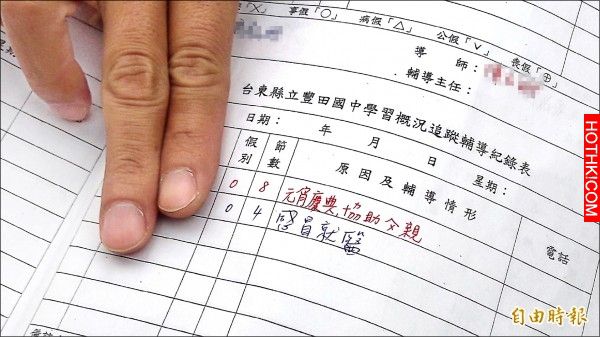 「╳」 事假「○」 病假「△」 公假「∨」 喪假「⊕」
導師：
輔導主任：
台東縣立豐田國中學習概況追蹤輔導紀錄表
日期： 年 月 日 星期：
假別 節數 原因及輔導情形 電話
0 8 元宵慶典協助父親
0 4 就醫
HOTHK.COM
自由時報